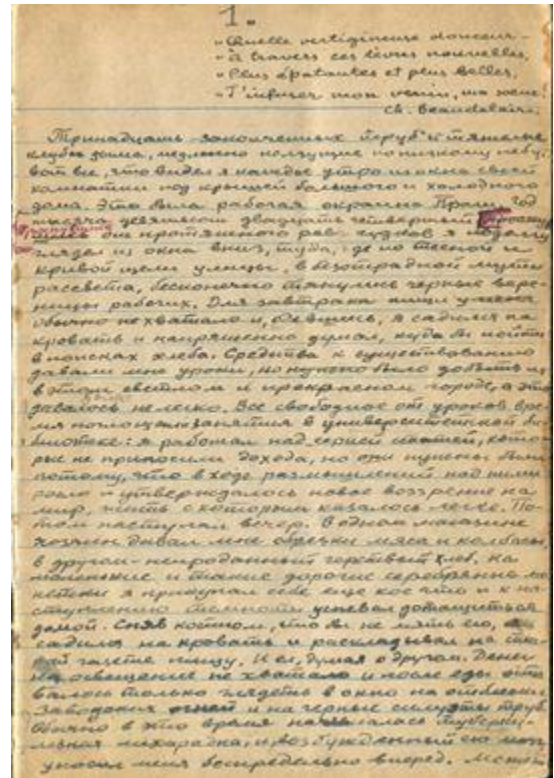 1.
"Quelle vertigineuse douceur -
"à travers ces lèvres nouvelles,
"Plus épatantes et plus belles,
"T'infuser mon venin, ma soeur!
Ch. Beaudelaire.
Тринадцать закопченных труб и тяжелые
клубы дыма, медленно ползущие по низкому небу
вот все, что видел я каждое утро из окна своей
комнатки под крышей большого и холодного
дома. Это была рабочая окраина Праги, год
тысяча девятьсот двадцать четвертый.
от протяжного рева гудков я подолгу
глядел из окна вниз, туда, где по тесной и
кривой щели улицы, в безотрадной мути
рассвета, бесконечно тянулись черные вере-
ницы рабочих. Для завтрака пищи у меня
обычно не хватало и, одевшись, я садился на
кровать и напряженно думал, куда бы пойти
в поисках хлеба. Средства к существованию
давали мне уроки, но нужно было добыть их
в этом светлом и прекрасном городе, а это
давалось нелегко. Все свободное от уроков вре-
мя поглощали занятия в университетской би-
блиотеке: я работал над серией статей, кото-
рые не приносили дохода, но они нужны были
потому, что в ходе размышлений над ними
росло и утверждалось новое воззрение на
мир, жить с которым казалось легче. По-
том наступал вечер. В одном магазине
хозяин давал мне обрезки мяса и колбасы,
в другом - непроданный черствый хлеб. На
маленькие и такие дорогие серебряные мо-
нетки я прикупал себе еще кое что и к на-
ступлению темноты успевал дотащиться
домой. Сняв костюм, что бы не мять его, я
садился на кровать и раскладывал на
газете пищу. И ел, думая о другом. Денег
на освещение не хватало и после еды оста-
валось только глядеть в окно на отблески
заводских огней и на черные силуэты труб.
Обычно в это время начиналась туберку-
лезная лихорадка, и, возбужденный ею мозг
уносил меня беспредельно вперед.